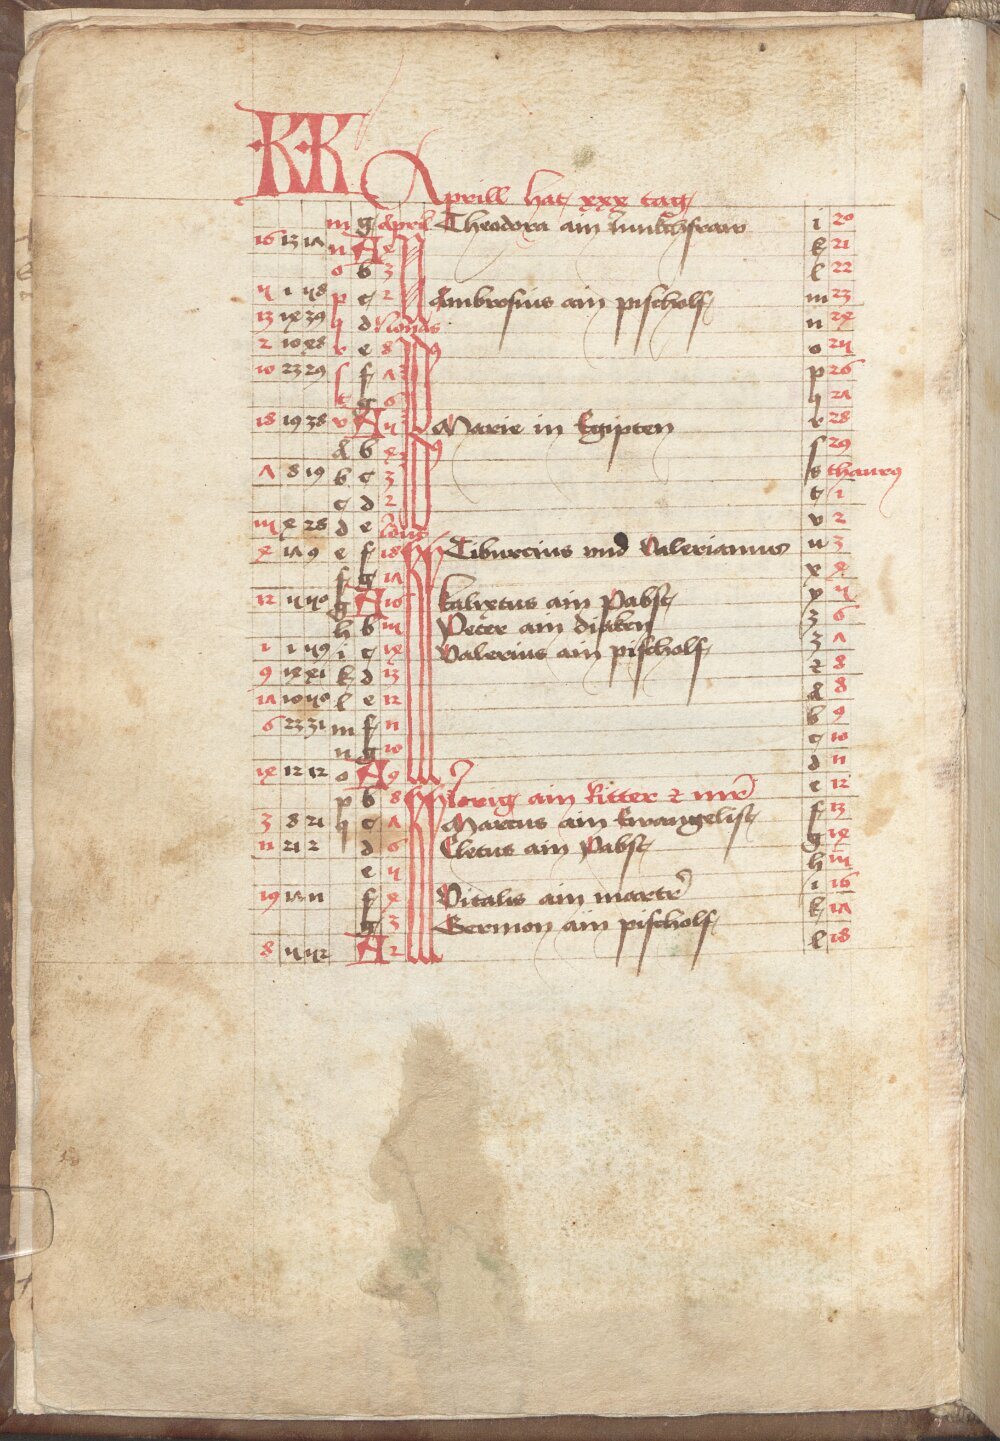 KK Aprill hat xxx tag
m g April Theodora ain Junkchfraw i 20
16 13 17 n A 4 k 21
o b 3 l 22
5 1 58 p c 2 Ambrosius ain pischolf m 23
13 14 39 q d Nonas n 24
2 10 48 r e 8 o 25
10 23 29 s f 7 p 26
t g 6 q 27
18 19 38 v A 5 Marie in Egipten r 28
a b 4 s 29
7 8 19 b c 3 s thaurus
c d 2 t 1
15 4 28 d e Idus v 2
4 17 9 e f 18 Tiburcius vnd Valerianus u 3
f g 17 x 4
12 5 50 g A 16 Kalixtus ain Pabst y 5
h b 15 Peter ain diaken z 6
1 1 59 i c 14 Valerius ain pischolf 3 7
9 14 41 k d 13 2 8
17 10 50 l e 12 a 8
6 23 31 m f 11 b 9
n g 10 c 10
14 12 12 o A 9 d 11
p b 8 Jorig ain Ritter 2 mrer e 12
3 8 21 q c 7 Marcus ain Ewangelist f 13
11 21 2 d 6 Cletus ain Pabst g 14
e 5 h 15
19 17 11 f 4 Vitalis ain martrer i 16
g 3 Germon ain pischolf k 17
8 5 52 A 2 l 18